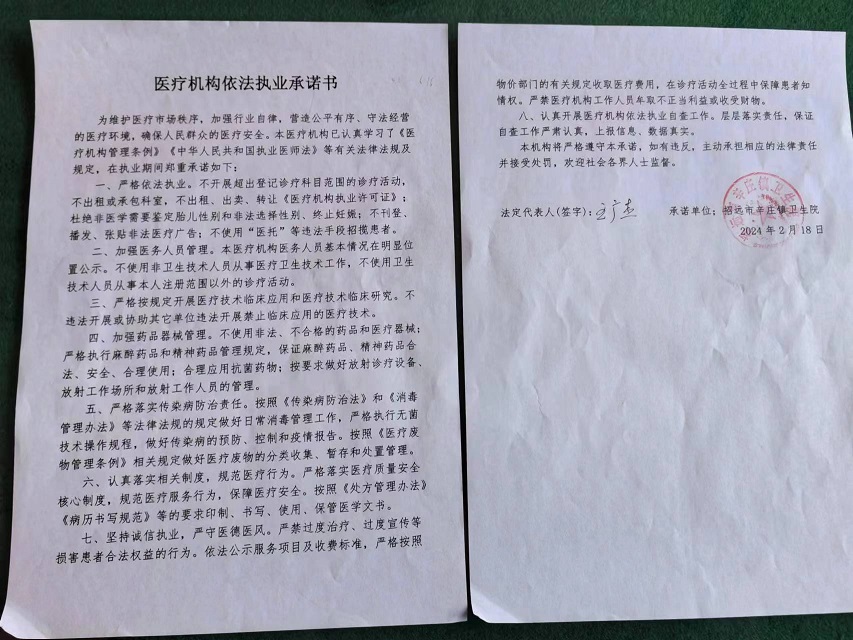 医疗机构依法执业承诺书
为维护医疗市场秩序，加强行业自律，营造公平有序、守法经营
的医疗环境，确保人民群众的医疗安全。本医疗机构已认真学习了《医
疗机构管理条例》《中华人民共和国执业医师法》等有关法律法规及
规定，在执业期间郑重承诺如下：
一、严格依法执业。不开展超出登记诊疗科目范围的诊疗活动，
不出租或承包科室，不出租、出卖、转让《医疗机构执业许可证》；
杜绝非医学需要鉴定胎儿性别和非法选择性别、终止妊娠；不刊登、
播发、张贴非法医疗广告；不使用“医托”等违法手段招揽患者。
二、加强医务人员管理。本医疗机构医务人员基本情况在明显位
置公示。不使用非卫生技术人员从事医疗卫生技术工作，不使用卫生
技术人员从事本人注册范围以外的诊疗活动。
三、严格按规定开展医疗技术临床应用和医疗技术临床研究。不
违法开展或协助其它单位违法开展禁止临床应用的医疗技术。
四、加强药品器械管理。不使用非法、不合格的药品和医疗器械；
严格执行麻醉药品和精神药品管理规定，保证麻醉药品、精神药品合
法、安全、合理使用；合理应用抗菌药物；按要求做好放射诊疗设备、
放射工作场所和放射工作人员的管理。
五、严格落实传染病防治责任。按照《传染病防治法》和《消毒
管理办法》等法律法规的规定做好日常消毒管理工作，严格执行无菌
技术操作规程，做好传染病的预防、控制和疫情报告。按照《医疗废
物管理条例》相关规定做好医疗废物的分类收集、暂存和处置管理。
六、认真落实相关制度，规范医疗行为。严格落实医疗质量安全
核心制度，规范医疗服务行为，保障医疗安全。按照《处方管理办法》
《病历书写规范》等的要求印制、书写、使用、保管医学文书。
七、坚持诚信执业，严守医德医风。严禁过度治疗、过度宣传等
损害患者合法权益的行为。依法公示服务项目及收费标准，严格按照
物价部门的有关规定收取医疗费用，在诊疗活动全过程中保障患者知
情权。严禁医疗机构工作人员牟取不正当利益或收受财物。
八、认真开展医疗机构依法执业自查工作。层层落实责任，保证
自查工作严肃认真，上报信息、数据真实。
本机构将严格遵守本承诺，如有违反，主动承担相应的法律责任
并接受处罚，欢迎社会各界人士监督。
法定代表人(签字)： 承诺单位：招远市辛庄镇卫生院
2024年2月18日